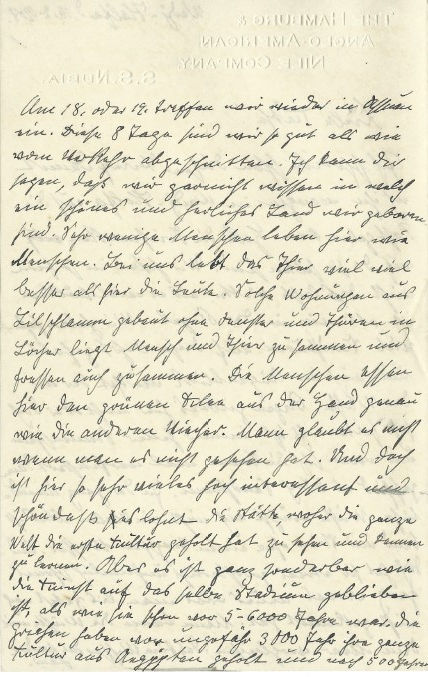 THE HAMBURG &
ANGLO-AMERICAN
NILE COMPANY.
S.S. NUBIA.
Am 18. oder 19. treffen wir wieder in Assuan
ein. Diese 8 Tage sind wir so gut als wie
vom Verkehr abgeschnitten. Ich kann dir
sagen, daß wir garnicht wissen in welch
ein schönes und herliches Land wir geboren
sind. Sehr wenige Menschen leben hier wie
Menschen. Bei uns lebt das Thier viel viel
besser als hier die Leute. Solche Wohnungen aus
Nilschlamm gebaut ohne Fenster und Thüren in
Löcher liegt Mensch und Thier zusammen und
fressen auch zusammen. Die Menschen essen
hier den grünen Klee aus der Hand genau
wie die anderen Viecher. Mann glaubt es nicht
wenn man es nicht gesehen hat. Und doch
ist hier so sehr vieles hoch interessant und
schön daß es lohnt die Stätte, woher die ganze
Welt die erste Kultur geholt hat zu sehen und kennen
zu lernen. Aber es ist ganz sonderbar wie
die Kunst auf das selbe Stadium geblieben
ist, als wie sie schon vor 5-6000 Jahre war. die
Griechen haben vor ungefähr 3000 Jahr ihre ganze
Kultur aus Aegypten geholt und nach 500 Jahren